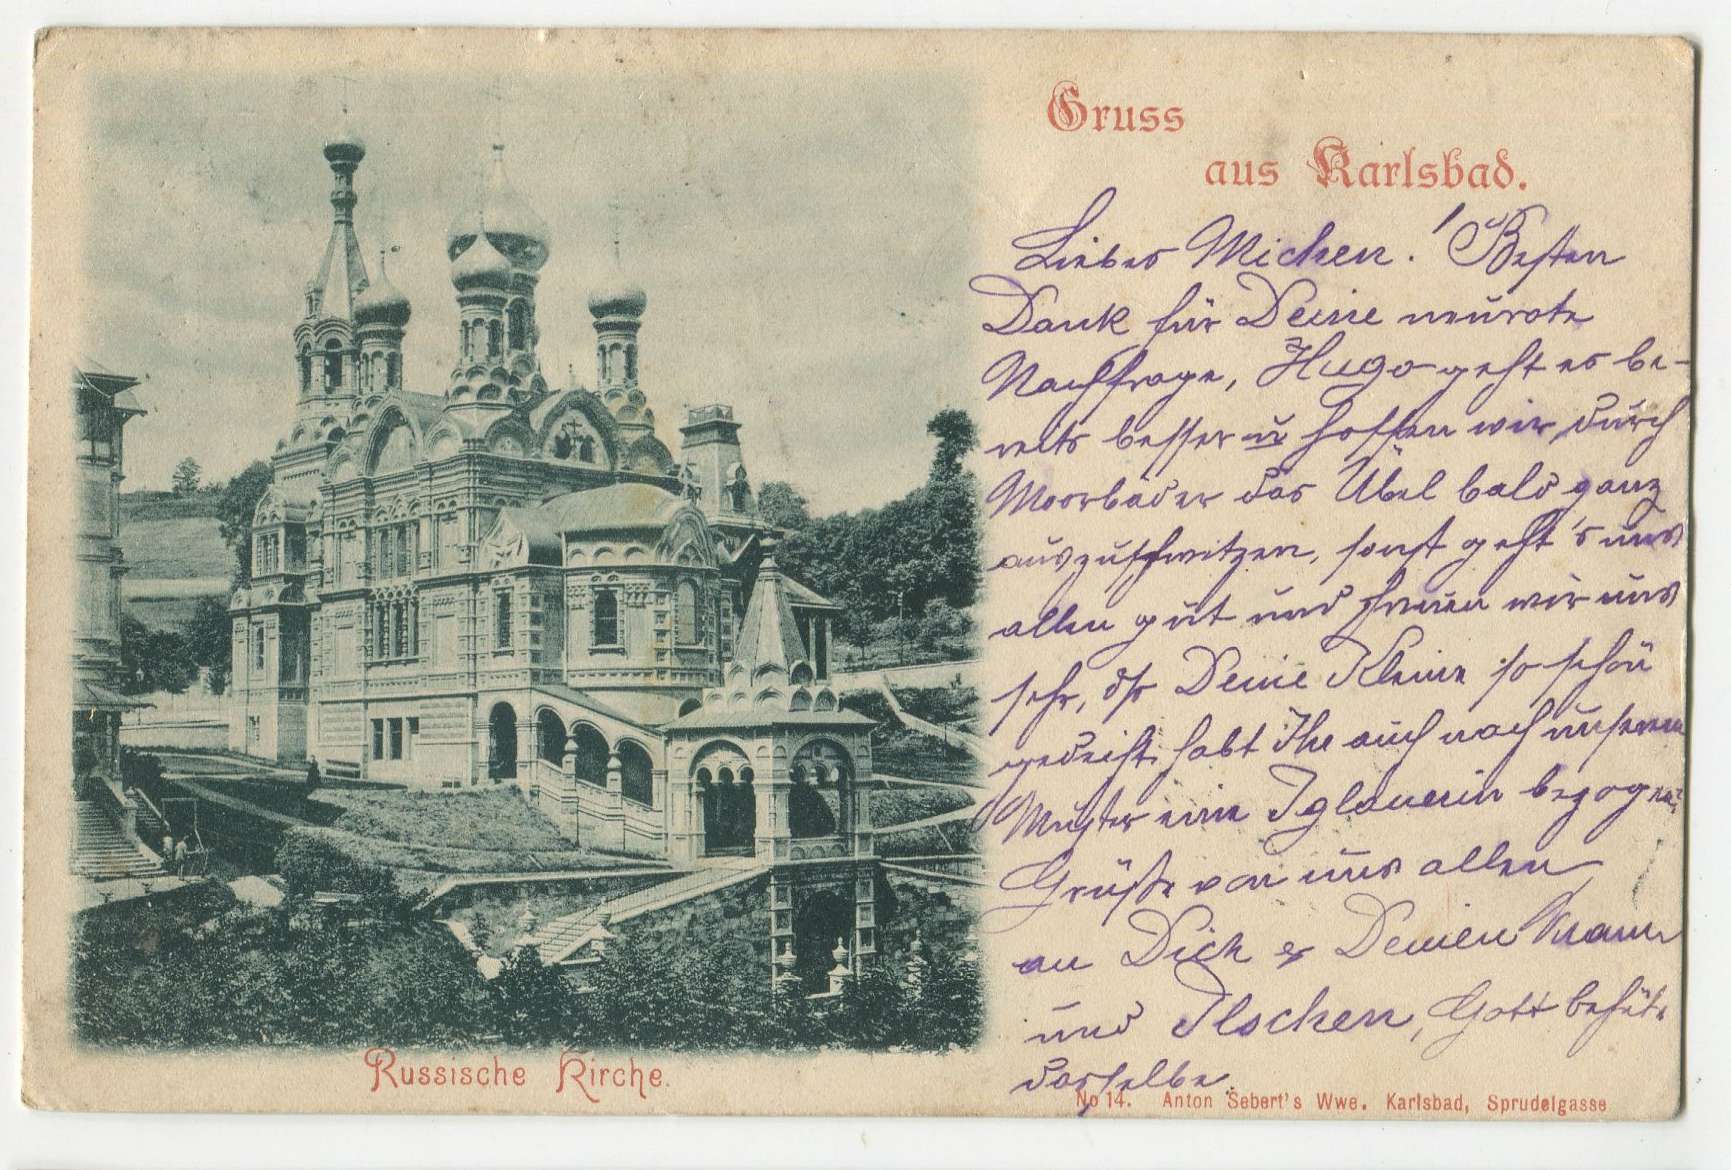 Gruss
aus Karlsbad.
Liebes Michen! Besten
Dank für Deine
Nachfrage, Hugo geht es be-
reits besser u hoffen wir, durch
Moorbäder das Übel bald ganz
auszuschwitzen, sonst geht's uns
allen gut und freuen wir uns
sehr, dss Deine Kleine so schön
gedeiht, habt Ihr auch nach unserem
Muster eine Iglauerin bezogen?
Grüße von uns allen
an Dich & Deinen Mann
und Ilschen, Gott behüte
dasselbe.
Russische Kirche.
No 14. Anton Sebert's Wwe. Karlsbad, Sprudelgasse